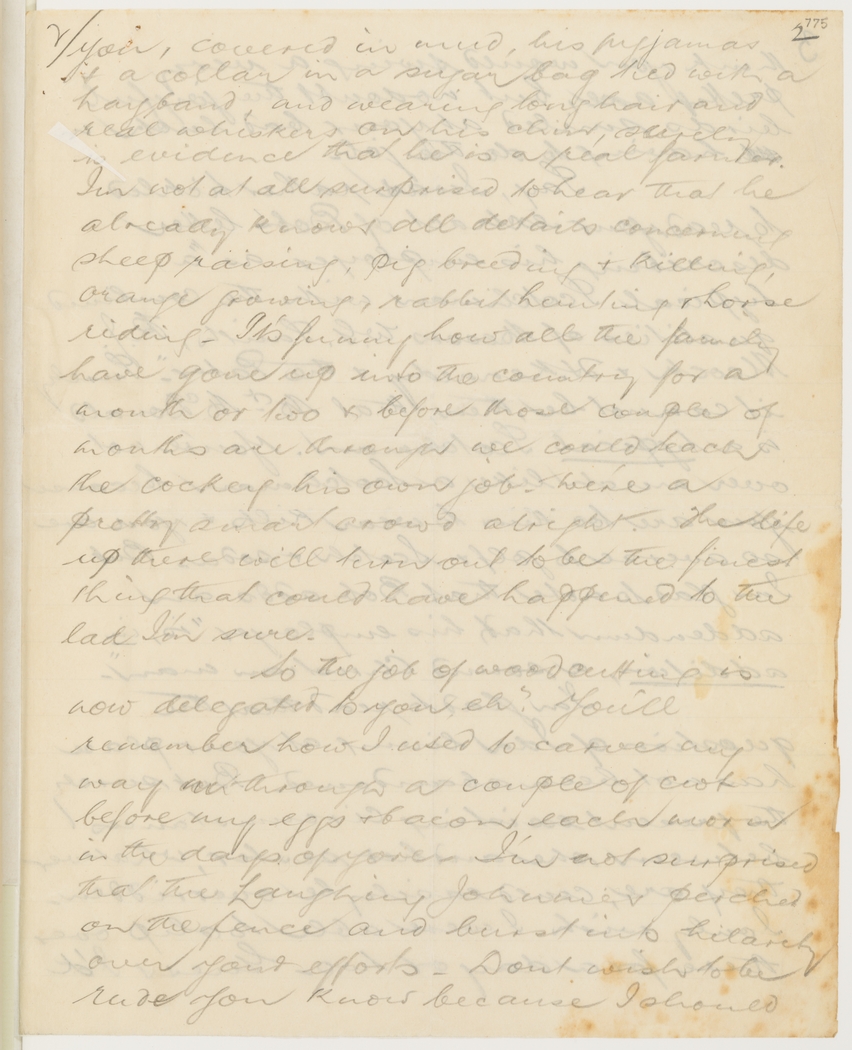 775
2
2/ you, covered in mud, his pyjamas
& a collar in a sugar bag tied with a
hayband, and wearing long hair and
real whiskers on his chin, surely
is evidence that he is a real farmer.
I'm not at all surprised to hear that he
already knows all details concerning
sheep raising, pig breeding & killing,
orange growing, rabbit hunting & horse
riding - It's funny how all the family
have gone up into the country for a
month or two & before those couple of
months are through we could teach
the cocky his own job - we're a
pretty smart crowd alright The life
up there will turn out to be the finest
thing that could have happened to the
lad I'm sure.
So the job of woodcutting is
now delegated to you eh? You'll
remember how I used to carve my
way through a couple of cwt
before my eggs & bacon each morn
in the days of yore - I'm not surprised
that the Laughing Johnnies perched
on the fence and burst into hilarity
over your efforts - Dont wish to be
rude you know because I should